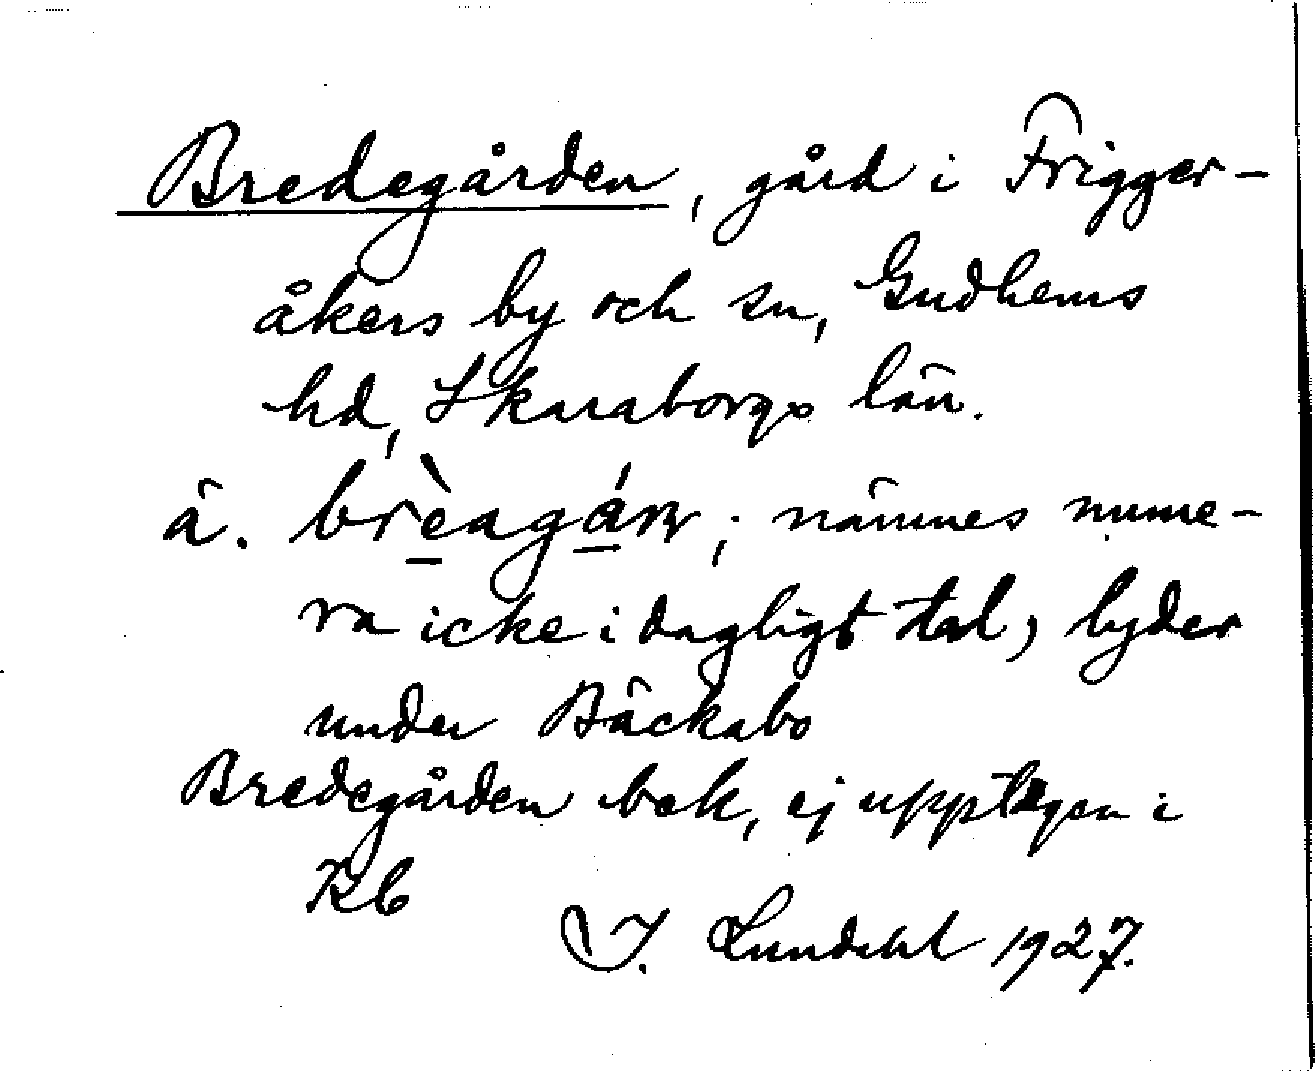 Bredegården, gård i Frigger-
åkers by och sn, Gudhems
hd, Skaraborgs län.
ä. brèagán; nämnes nume-
ra icke i dagligt tal, lyder
under Bäckabo
Bredegården bek, ej upptagen i
Rb
I. Lundahl 1927.